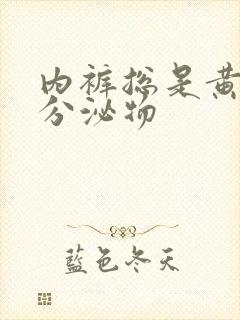 内裤总是黄
分泌物
藍色冬天